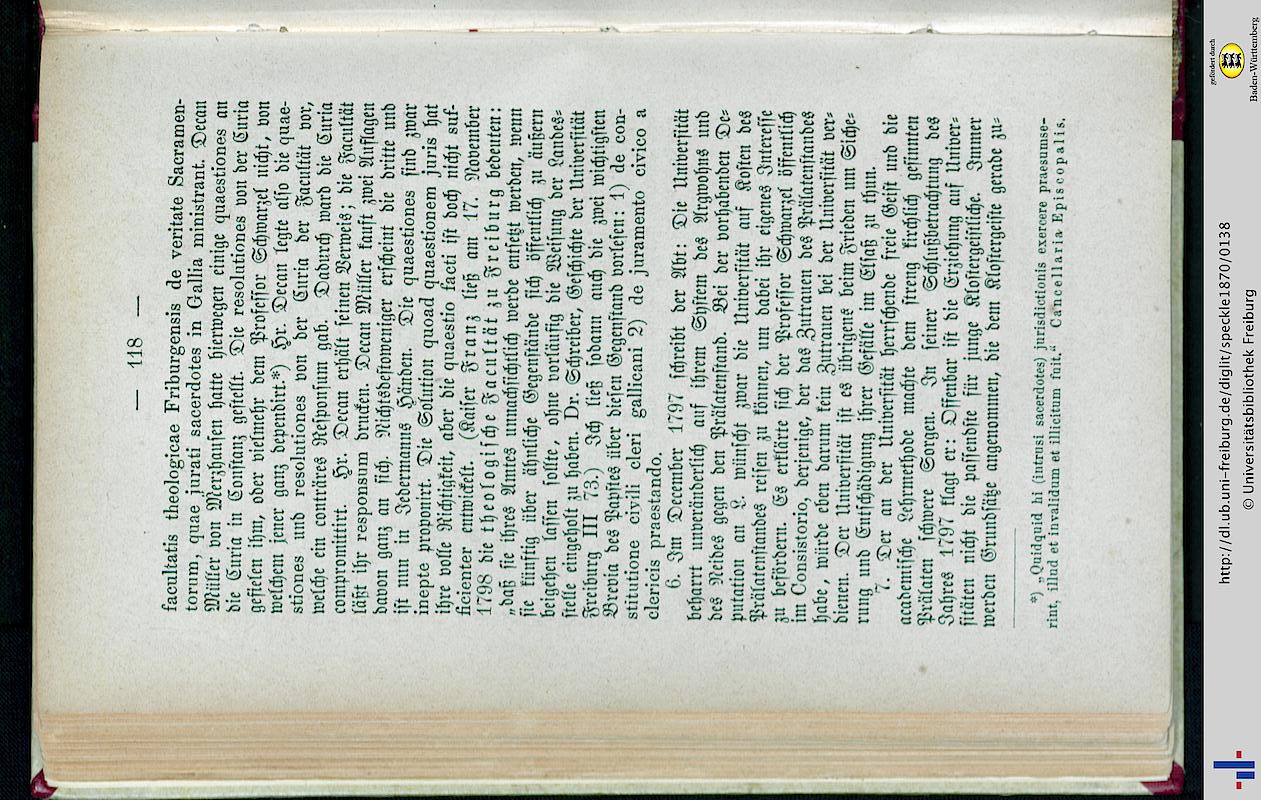 — 118 —
facultatis theologicae Friburgensis de veritate Sacramen-
torum, quae jurati sacerdotes in Gallia ministrant. Decan
Müller von Merzhausen hatte hierwegen einige quaestiones an
die Curia in Constanz gestellt. Die resolutiones von der Curia
gefielen ihm, oder vielmehr dem Professor Schwarzel nicht, von
welchem jener ganz dependirt.*) Hr. Decan legte also die quae-
stiones und resolutiones von der Curia der Facultät vor,
welche ein conträres Responsum gab. Dadurch ward die Curia
compromittirt. Hr. Decan erhält seinen Verweis; die Facultät
läßt ihr responsum drucken. Decan Müller kauft zwei Auflagen
davon ganz an sich. Nichtsdestoweniger erscheint die dritte und
ist nun in Jedermanns Händen. Die quaestiones sind zwar
inepte proponirt. Die Solution quoad quaestionem juris hat
ihre volle Richtigkeit, aber die quaestio facti ist doch nicht suf-
ficienter entwickelt. (Kaiser Franz ließ am 17. November
1798 die theologische Facultät zu Freiburg bedeuten:
„daß sie ihres Amtes unnachsichtlich werde entsetzt werden, wenn
sie künftig über ähnliche Gegenstände sich öffentlich zu äußern
beigehen lassen sollte, ohne vorläufig die Weisung der Landes-
stelle eingeholt zu haben. Dr. Schreiber, Geschichte der Universität
Freiburg III 73.) Ich ließ sodann auch die zwei wichtigsten
Brevia des Papstes über diesen Gegenstand vorlesen: 1) de con-
stitutione civili cleri gallicani 2) de juramento civico a
clericis praestando.
6. Im December 1797 schreibt der Abt: Die Universität
beharrt unveränderlich auf ihrem System des Argwohns und
des Neides gegen den Prälatenstand. Bei der vorhabenden De-
putation an L. wünscht zwar die Universität auf Kosten des
Prälatenstandes reisen zu können, um dabei ihr eigenes Interesse
zu befördern. Es erklärte sich der Professor Schwarzel öffentlich
im Consistorio, derjenige, der das Zutrauen des Prälatenstandes
habe, würde eben darum kein Zutrauen bei der Universität ver-
dienen. Der Universität ist es übrigens beim Frieden um Siche-
rung und Entschädigung ihrer Gefälle im Elsaß zu thun.
7. Der an der Universität herrschende freie Geist und die
academische Lehrmethode machte dem streng kirchlich gesinnten
Prälaten schwere Sorgen. In seiner Schlußbetrachtung des
Jahres 1797 klagt er: Offenbar ist die Erziehung auf Univer-
sitäten nicht die passendste für junge Klostergeistliche. Immer
werden Grundsätze angenommen, die dem Klostergeiste gerade zu-
*) „Quidquid hi (intrusi sacerdotes) jurisdictionis exercere praesumse-
rint, illud et invalidum et illicitum fuit.“ Cancellaria Episcopalis.
http://dl.ub.uni-freiburg.de/diglit/speckle1870/0138
© Universitätsbibliothek Freiburg
gefördert durch
Baden-Württemberg